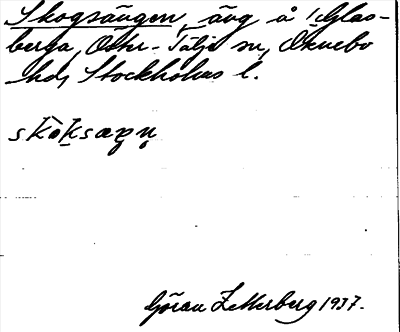 Skogsängen, äng å Glas-
berga, Öster-Tälje sn, Öknebo
hd, Stockholms l.
Göran Zetterberg 1937.